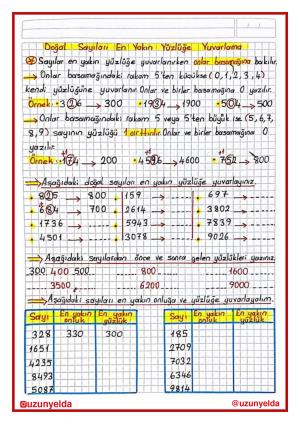 Doğal Sayıları En Yakın Yüzlüğe Yuvarlama
Sayılar en yakın yüzlüğe yuvarlanırken onlar basamağına bakılır.
→ Onlar basamağındaki rakam 5'ten küçükse (0,1,2,3,4)
kendi yüzlüğüne yuvarlanır. Onlar ve birler basamağına 0 yazılır.
Örnek: 306 → 300 • 1934 → 1900 • 504 → 500
→ Onlar basamağındaki rakam 5 veya 5'ten büyük ise (5,6,7,
8,9) sayının yüzlüğü 1 arttırılır. Onlar ve birler basamağına 0
yazılır.
Örnek: 174 → 200 • 4596 → 4600 • 752 → 800
→ Aşağıdaki doğal sayıları en yakın yüzlüğe yuvarlayınız.
• 825 → 800 • 159 → • 697 →
• 684 → 700 • 2614 → • 3802 →
• 1736 → • 5943 → • 7839 →
• 4501 → • 3078 → • 9026 →
→ Aşağıdaki sayılardan önce ve sonra gelen yüzlükleri yazınız.
300 400 500 ........ 800 ........ 1600 ........
........ 3500 ........ 6200 ........ 9000 ........
→ Aşağıdaki sayıları en yakın onluğa ve yüzlüğe yuvarlayalım.
Sayı En yakın onluk En yakın yüzlük Sayı En yakın onluk En yakın yüzlük
328 330 300 185
1651 2709
4235 7032
8493 6346
5087 9814
@uzunyelda @uzunyelda